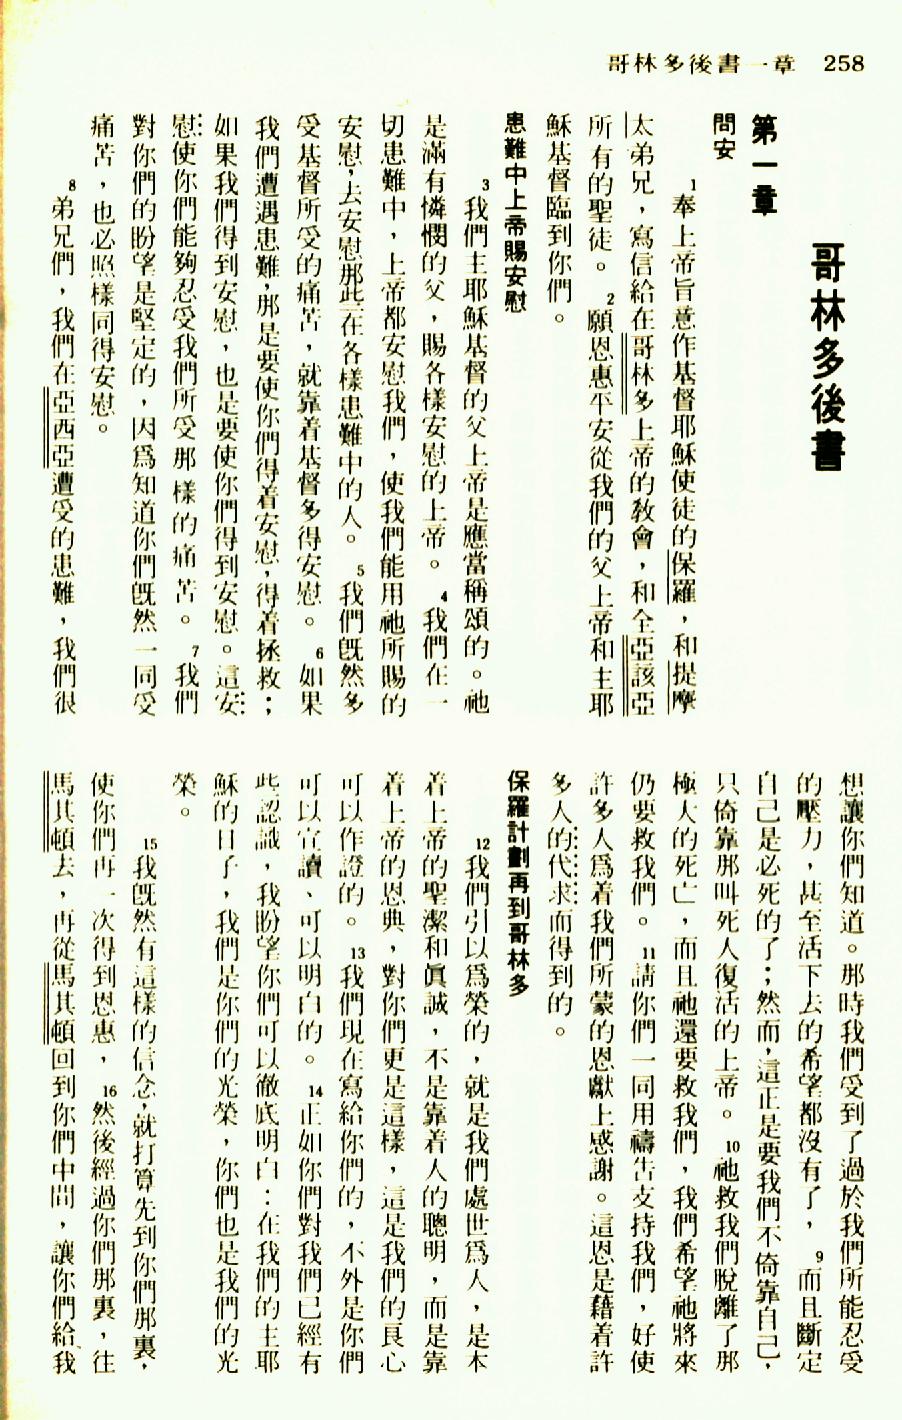 哥林多後書一章 258
哥林多後書
第一章
問安
1奉上帝旨意作基督耶穌使徒的保羅，和提摩
太弟兄，寫信給在哥林多上帝的教會，和全亞該亞
所有的聖徒。2願恩惠平安從我們的父上帝和主耶
穌基督臨到你們。
患難中上帝賜安慰
3我們主耶穌基督的父上帝是應當稱頌的。祂
是滿有憐憫的父，賜各樣安慰的上帝。4我們在一
切患難中，上帝都安慰我們，使我們能用祂所賜的
安慰，去安慰那些在各樣患難中的人。5我們既然多
受基督所受的痛苦，就靠着基督多得安慰。6如果
我們遭遇患難，那是要使你們得着安慰，得着拯救；
如果我們得到安慰，也是要使你們得到安慰。這安
慰使你們能夠忍受我們所受那樣的痛苦。7我們
對你們的盼望是堅定的，因爲知道你們既然一同受
痛苦，也必照樣同得安慰。
8弟兄們，我們在亞西亞遭受的患難，我們很
想讓你們知道。那時我們受到了過於我們所能忍受
的壓力，甚至活下去的希望都沒有了，9而且斷定
自己是必死的了；然而，這正是要我們不倚靠自己，
只倚靠那叫死人復活的上帝。10祂救我們脫離了那
極大的死亡，而且祂還要救我們，我們希望祂將來
仍要救我們。11請你們一同用禱告支持我們，好使
許多人爲着我們所蒙的恩獻上感謝。這恩是藉着許
多人的代求而得到的。
保羅計劃再到哥林多
12我們引以爲榮的，就是我們處世爲人，是本
着上帝的聖潔和眞誠，不是靠着人的聰明，而是靠
着上帝的恩典，對你們更是這樣，這是我們的良心
可以作證的。13我們現在寫給你們的，不外是你們
可以宣讀、可以明白的。14正如你們對我們已經有
些認識，我盼望你們可以徹底明白：在我們的主耶
穌的日子，我們是你們的光榮，你們也是我們的光
榮。
15我既然有這樣的信念，就打算先到你們那裏，
使你們再一次得到恩惠，16然後經過你們那裏，往
馬其頓去，再從馬其頓回到你們中間，讓你們給我